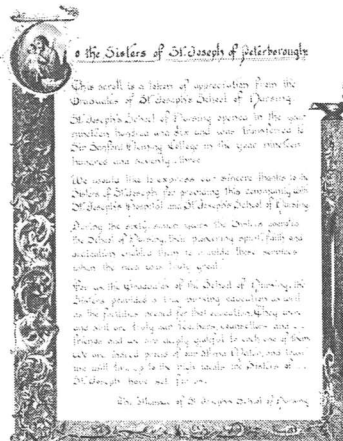 o the Sisters of St. Joseph of Peterborough:
This scroll is a token of appreciation from the
Graduates of St. Joseph's School of Nursing
St. Joseph's School of Nursing opened in the year
nineteen hundred and six and was transferred to
Sir Sanford Fleming College in the year nineteen
hundred and seventy three.
We would like to express our sincere thanks to the
Sisters of St. Joseph for providing this community with
St. Joseph's Hospital and St. Joseph's School of Nursing
During the sixty seven years the Sisters operated
the School of Nursing, their pioneering spirit, faith and
dedication enabled them to provide these services
when the need was truly great.
For us the Graduates of the School of Nursing, the
Sisters provided a nursing education as well
as the facilities needed for that education. They were
and still are truly our teachers, counsellors and
friends and we are deeply grateful to each one of them
We are indeed proud of our Alma Mater, and trust
we will live up to the high ideals the Sisters of
St. Joseph have set for us.
The Alumnae of St. Joseph's School of Nursing